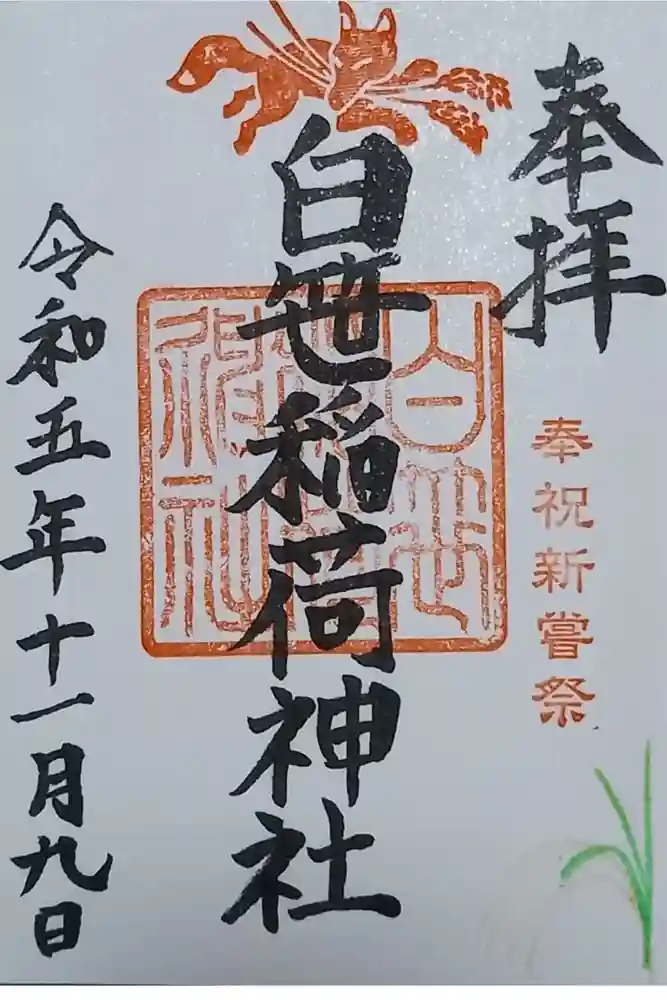 奉拝
奉祝新嘗祭
白笹稲荷神社
白笹稲荷神社
令和五年十一月九日